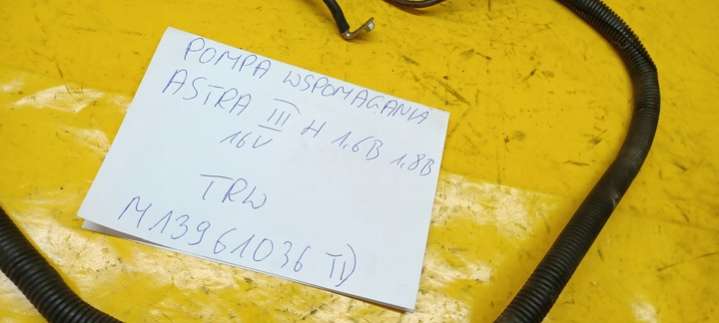 POMPA WSPOMAGANIA
ASTRA III H 1,6B 1,8B
16V
TRW
M13961036 II)